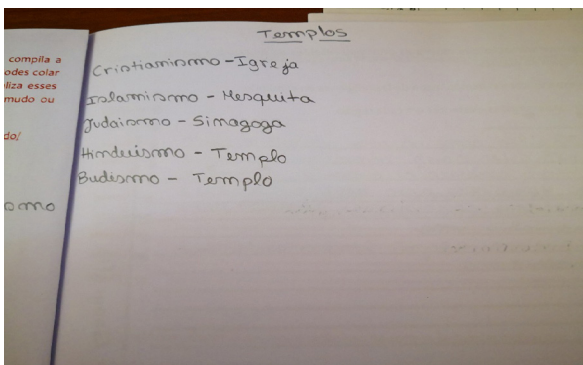 Templos
compila a
odes colar
liza esses
mudo ou
do/
omo
Cristianismo - Igreja
Islamismo - Mesquita
Judaismo - Simagoga
Hinduismo - Templo
Budismo - Templo